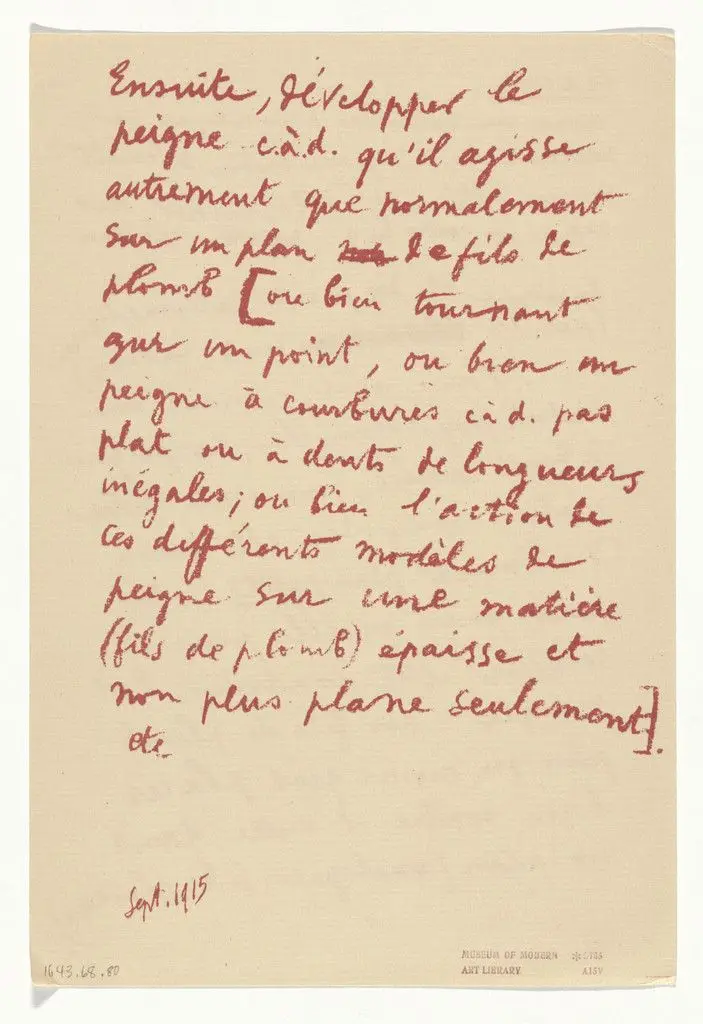 Ensuite, développer le
peigne c.à.d. qu'il agisse
autrement que normalement
sur un plan de fils de
plomb [ou bien tournant
sur un point, ou bien un
peigne à courbures càd. pas
plat ou à dents de longueurs
inégales; ou bien l'action de
ces différents modèles de
peigne sur une matière
(fils de plomb) épaisse et
non plus plane seulement].
etc
Sept. 1915
1643.68.80
MUSEUM OF MODERN
ART LIBRARY